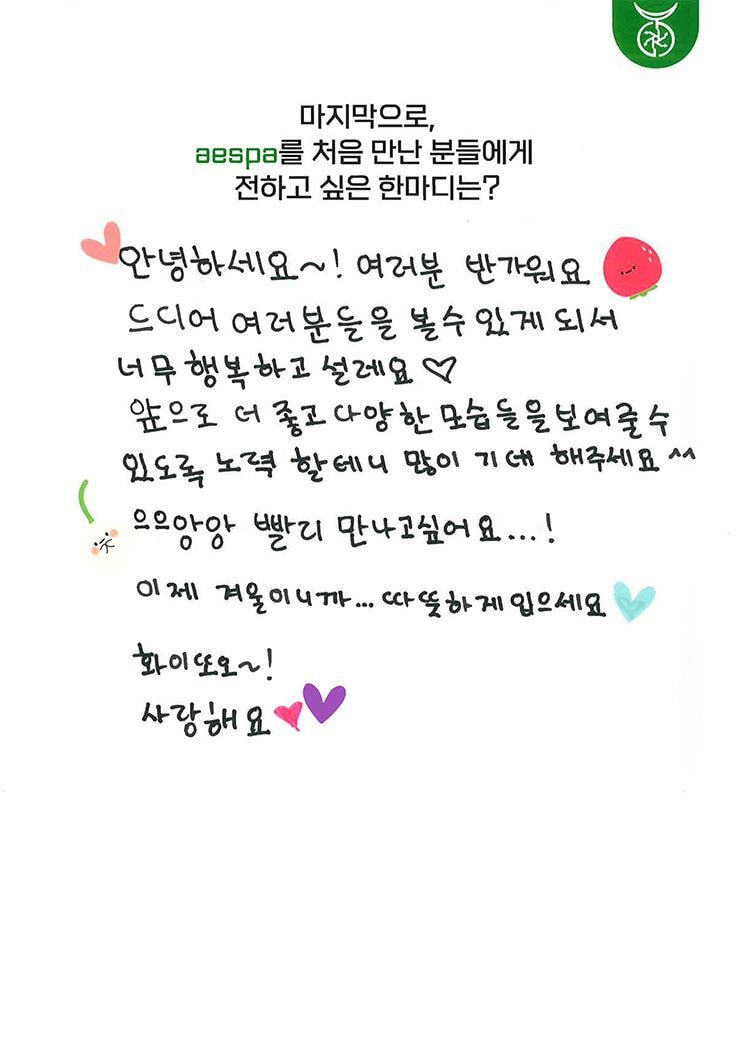 마지막으로,
aespa를 처음 만난 분들에게
전하고 싶은 한마디는?
안녕하세요~! 여러분 반가워요
드디어 여러분들을 볼수있게 되서
너무 행복하고 설레요♡
앞으로 더 좋고 다양한 모습들을 보여줄 수
있도록 노력 할테니 많이 기대 해주세요^^
으으앙앙 빨리 만나고싶어요...!
이제 겨울이니까... 따뜻하게입으세요
화이또오~!
사랑해요